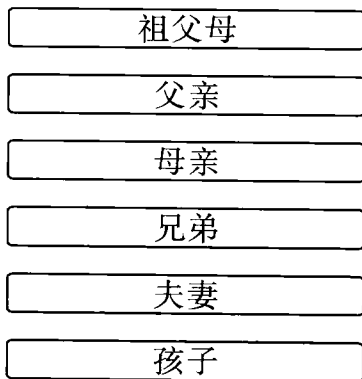 祖父母
父亲
母亲
兄弟
夫妻
孩子